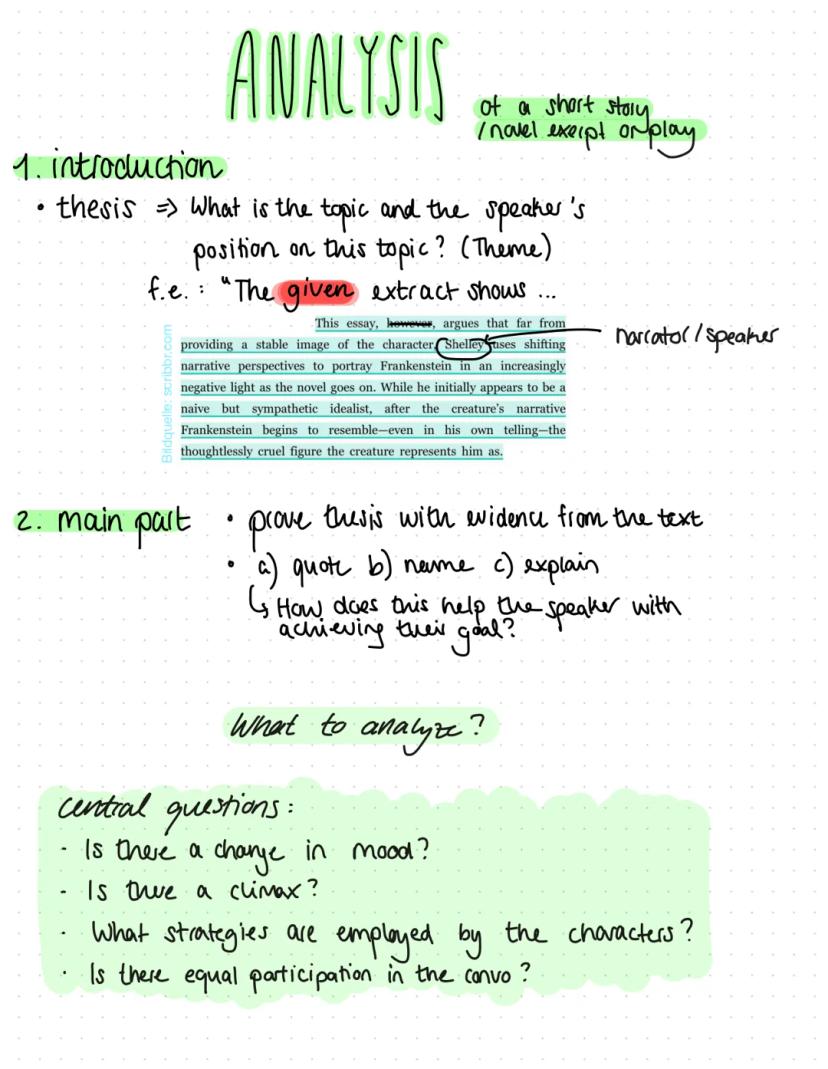 ANALYSIS
of a short story
/ novel exerpt or play
1. introduction
• thesis ⇒ What is the topic and the speaker's
position on this topic? (Theme)
f.e.: "The given extract shows ...
This essay, however, argues that far from
providing a stable image of the character, Shelley uses shifting
narrative perspectives to portray Frankenstein in an increasingly
negative light as the novel goes on. While he initially appears to be a
naive but sympathetic idealist, after the creature's narrative
Frankenstein begins to resemble—even in his own telling—the
thoughtlessly cruel figure the creature represents him as.
narrator/speaker
Bildquelle: scribbr.com
2. main part
• prove thesis with evidence from the text
• a) quote b) name c) explain
↳ How does this help the speaker with
achieving their goal?
What to analyze?
central questions:
- Is there a change in mood?
- Is there a climax?
· What strategies are employed by the characters?
· Is there equal participation in the convo?